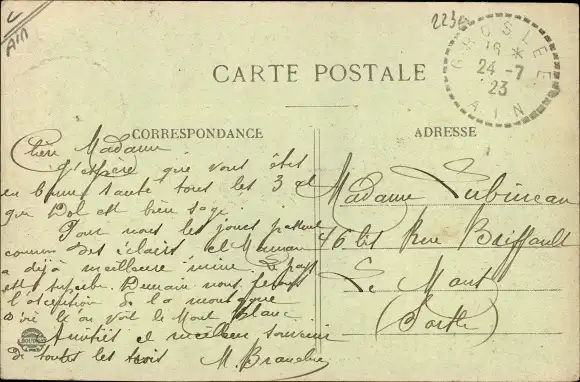 L
AIN
223
GROSLEE
18 *
24 -7
23
AIN
CARTE POSTALE
CORRESPONDANCE
ADRESSE
Chère Madame
J'espère que vous êtes
en bonne santé tous les 3 et
que est bien sage
Pour nous les jours passent
comme des éclairs et Maman
a déjà meilleure mine. Le pays
est superbe. Demain nous ferons
l'ascension de la montagne
d'où l'on voit le Mont Blanc
Amitiés et meilleur souvenir
de toutes les trois M.
Madame
46 bis Rue
Le Mans
(Sarthe)